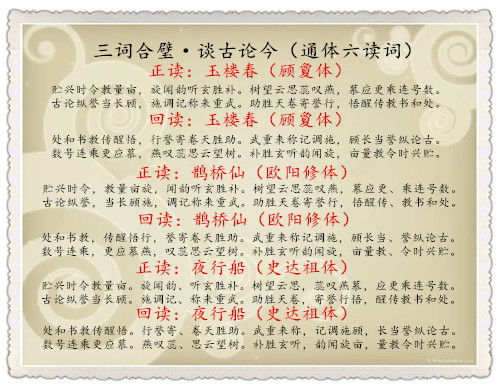 三词合璧·谈古论今（通体六读词）
正读：玉楼春（顾夐体）
贮兴时令教量亩，旋闻韵听玄胜补。树望云思蕊叹燕，慕应更乘连号数。
古论纵誉当长顾，施调记称来重武。助胜天卷寄誉行，悟醒传教书和处。
回读：玉楼春（顾夐体）
处和书教传醒悟，行誉寄卷天胜助。武重来称记调施，顾长当誉纵论古。
数号连乘更应慕，燕叹蕊思云望树。补胜玄听韵闻旋，亩量教令时兴贮。
正读：鹊桥仙（欧阳修体）
贮兴时令，教量亩旋，闻韵听玄胜补。树望云思蕊叹燕，慕应更、乘连号数。
古论纵誉，当长顾施，调记称来重武。助胜天卷寄誉行，悟醒传、教书和处。
回读：鹊桥仙（欧阳修体）
处和书教，传醒悟行，誉寄卷天胜助。武重来称记调施，顾长当、誉纵论古。
数号连乘，更应慕燕，叹蕊思云望树。补胜玄听韵闻旋，亩量教、令时兴贮。
正读：夜行船（史达祖体）
贮兴时令教量亩。旋闻韵、听玄胜补。树望云思，蕊叹燕慕，应更乘连号数。
古论纵誉当长顾。施调记、称来重武。助胜天卷，寄誉行悟，醒传教书和处。
回读：夜行船（史达祖体）
处和书教传醒悟。行誉寄、卷天胜助。武重来称，记调施顾，长当誉纵论古。
数号连乘更应慕。燕叹蕊、思云望树。补胜玄听，韵闻旋亩，量教令时兴贮。